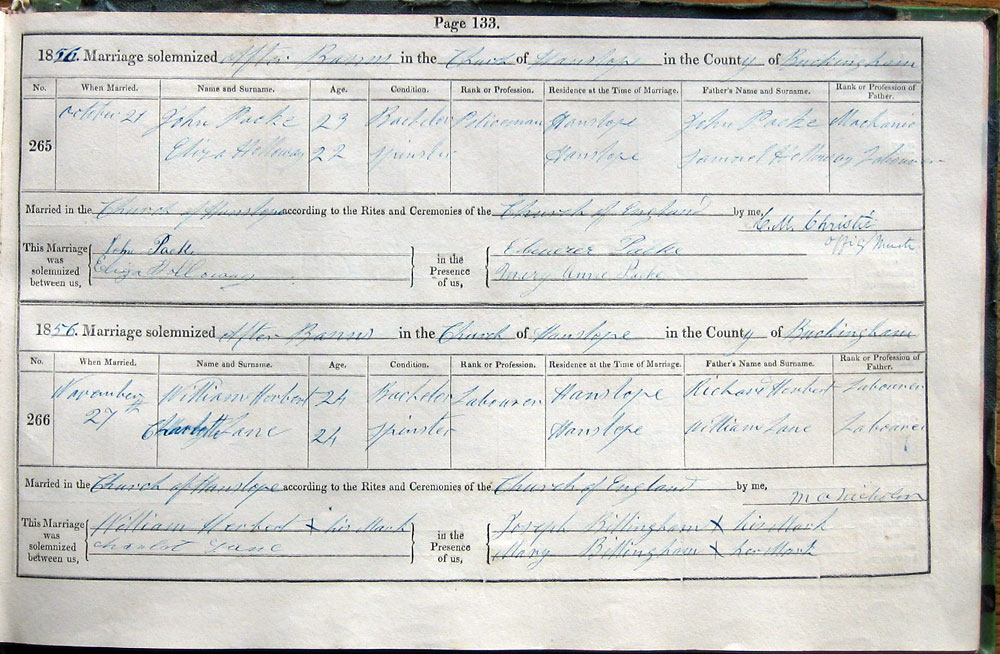 Page 133.
1856. Marriage solemnized After Banns in the Church of Hanslope in the County of Buckingham
No. When Married. Name and Surname. Age. Condition. Rank or Profession. Residence at the Time of Marriage. Father's Name and Surname. Rank or Profession of Father.
265 October 21 John Packe 23 Bachelor Policeman Hanslope John Packe Machanic
Eliza Holloway 22 Spinster Hanslope Samuel Holloway Labourer
Married in the Church of Hanslope according to the Rites and Ceremonies of the Church of England by me, C. M. Christie
This Marriage was solemnized between us, John Packe in the Presence of us, Ebenezer Packe
Eliza Holloway Mary Anne Packe
1856. Marriage solemnized After Banns in the Church of Hanslope in the County of Buckingham
No. When Married. Name and Surname. Age. Condition. Rank or Profession. Residence at the Time of Marriage. Father's Name and Surname. Rank or Profession of Father.
266 November 27th William Herbert 24 Bachelor Labourer Hanslope Richard Herbert Labourer
Charlotte Lane 24 Spinster Hanslope William Lane Labourer
Married in the Church of Hanslope according to the Rites and Ceremonies of the Church of England by me,
This Marriage was solemnized between us, William Herbert X his Mark in the Presence of us, Joseph Billingham X his Mark
Charlot Lane Mary Billingham X her Mark